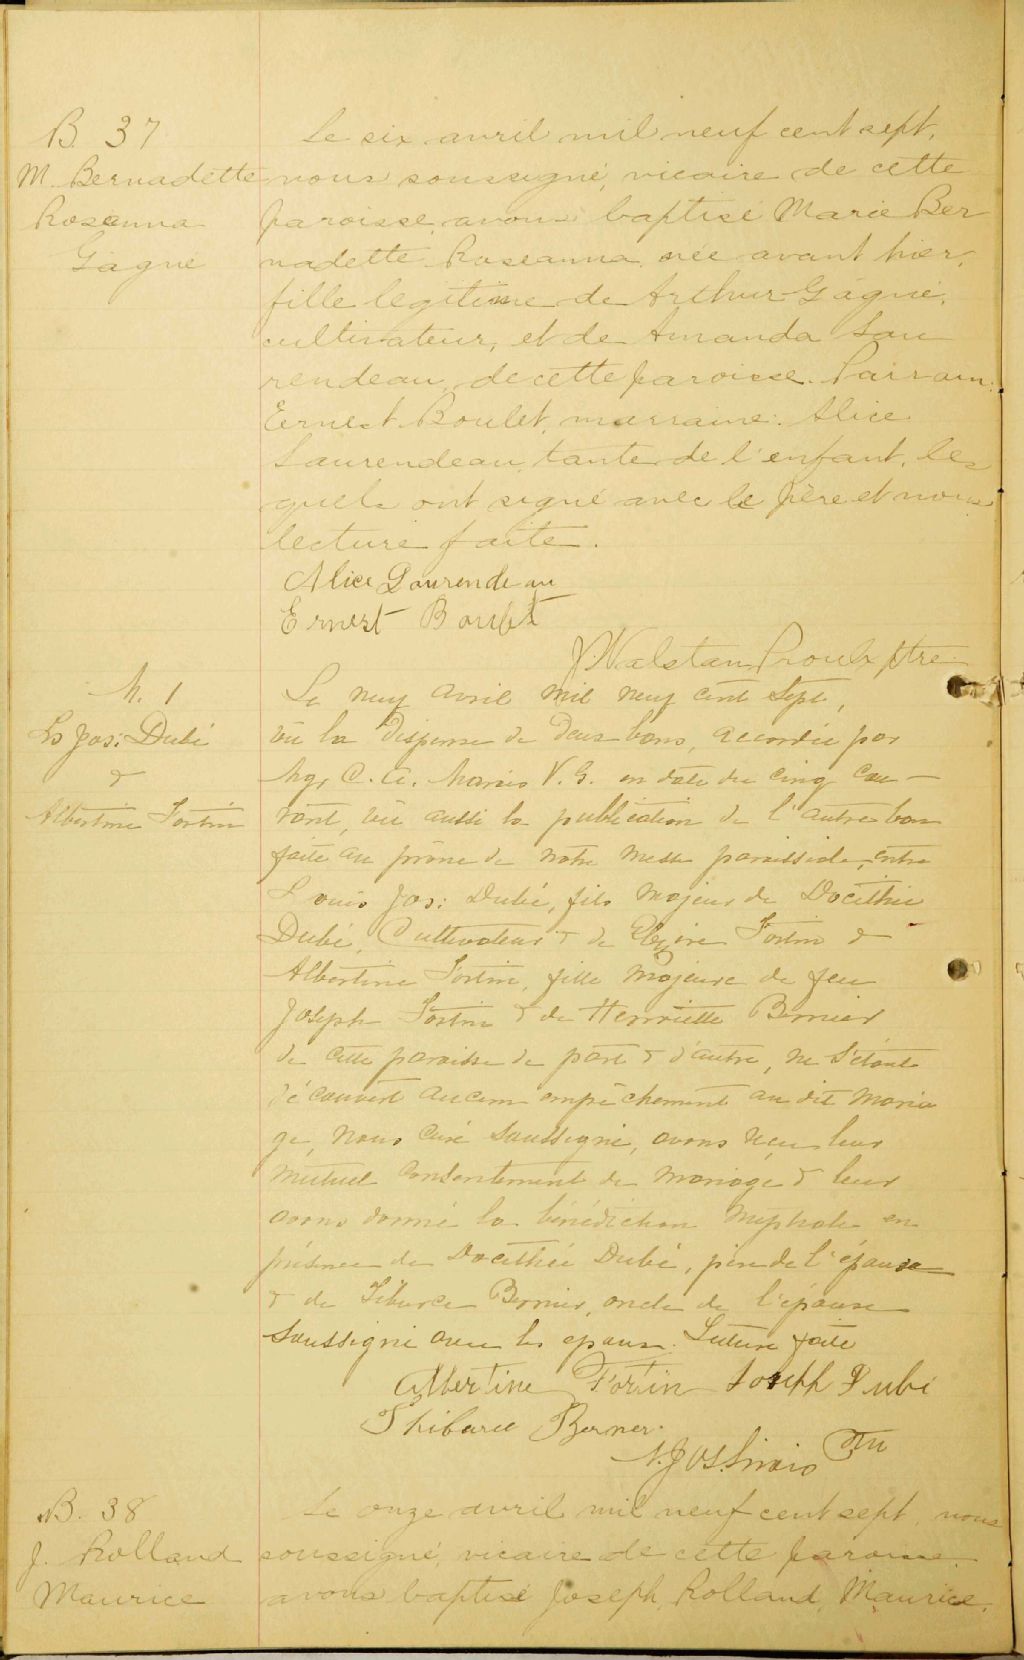 B. 37
M. Bernadette
Roseanna
Gagné
Le six avril mil neuf cent sept,
nous soussigné, vicaire de cette
paroisse avons baptisé Marie Ber
nadette Roseanna née avant hier,
fille légitime de Arthur Gagné,
cultivateur, et de Amanda Lau
rendeau, de cette paroisse. Parrain:
Ernest Boulet, marraine: Alice
Laurendeau, tante de l'enfant, les
quels ont signé avec le père et nous
lecture faite.
Alice Laurendeau
Ernest Boulet
J. Walstan Proulx ptre
M. 1
Ls Jos: Dubé
&
Albertine Fortin
Le neuf avril mil neuf cent sept,
vu la dispense de deux bans, accordée par
Mgr C. A. Marois V. G. en date du cinq cou-
rant, vu aussi la publication de l'autre ban
faite au prône de notre messe paroissiale, entre
Louis Jos: Dubé, fils majeur de Docithée
Dubé, Cultivateur & de Elzire Fortin &
Albertine Fortin, fille majeure de feu
Joseph Fortin & de Henriette Bernier
de cette paroisse de part & d'autre, ne s'étant
découvert aucun empêchement au dit maria
ge, nous curé soussigné, avons reçu leur
mutuel consentement de mariage & leur
avons donné la bénédiction nuptiale en
présence de Docithée Dubé, père de l'époux
& de Tiburce Bernier, oncle de l'épouse
soussigné avec les époux. Lecture faite
Albertine Fortin Joseph Dubé
Thiburce Berner
N. Jos. Sirois Ptre
B. 38
J. Rolland
Maurice
Le onze avril mil neuf cent sept, nous
soussigné, vicaire de cette paroisse,
avons baptisé Joseph, Rolland, Maurice,